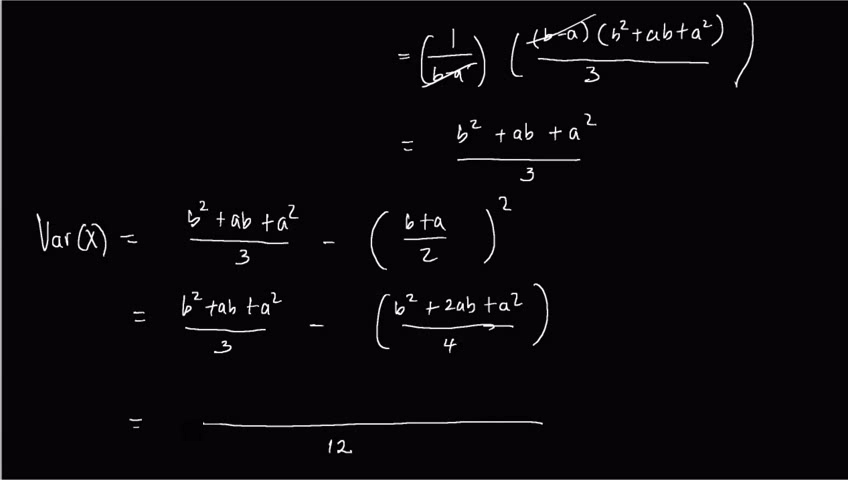 = (1/(b-a)) ((b-a)(b²+ab+a²)/3)
= (b² + ab + a²)/3
Var(X) = (b² + ab + a²)/3 - ((b+a)/2)²
= (b² + ab + a²)/3 - ((b² + 2ab + a²)/4)
= /12